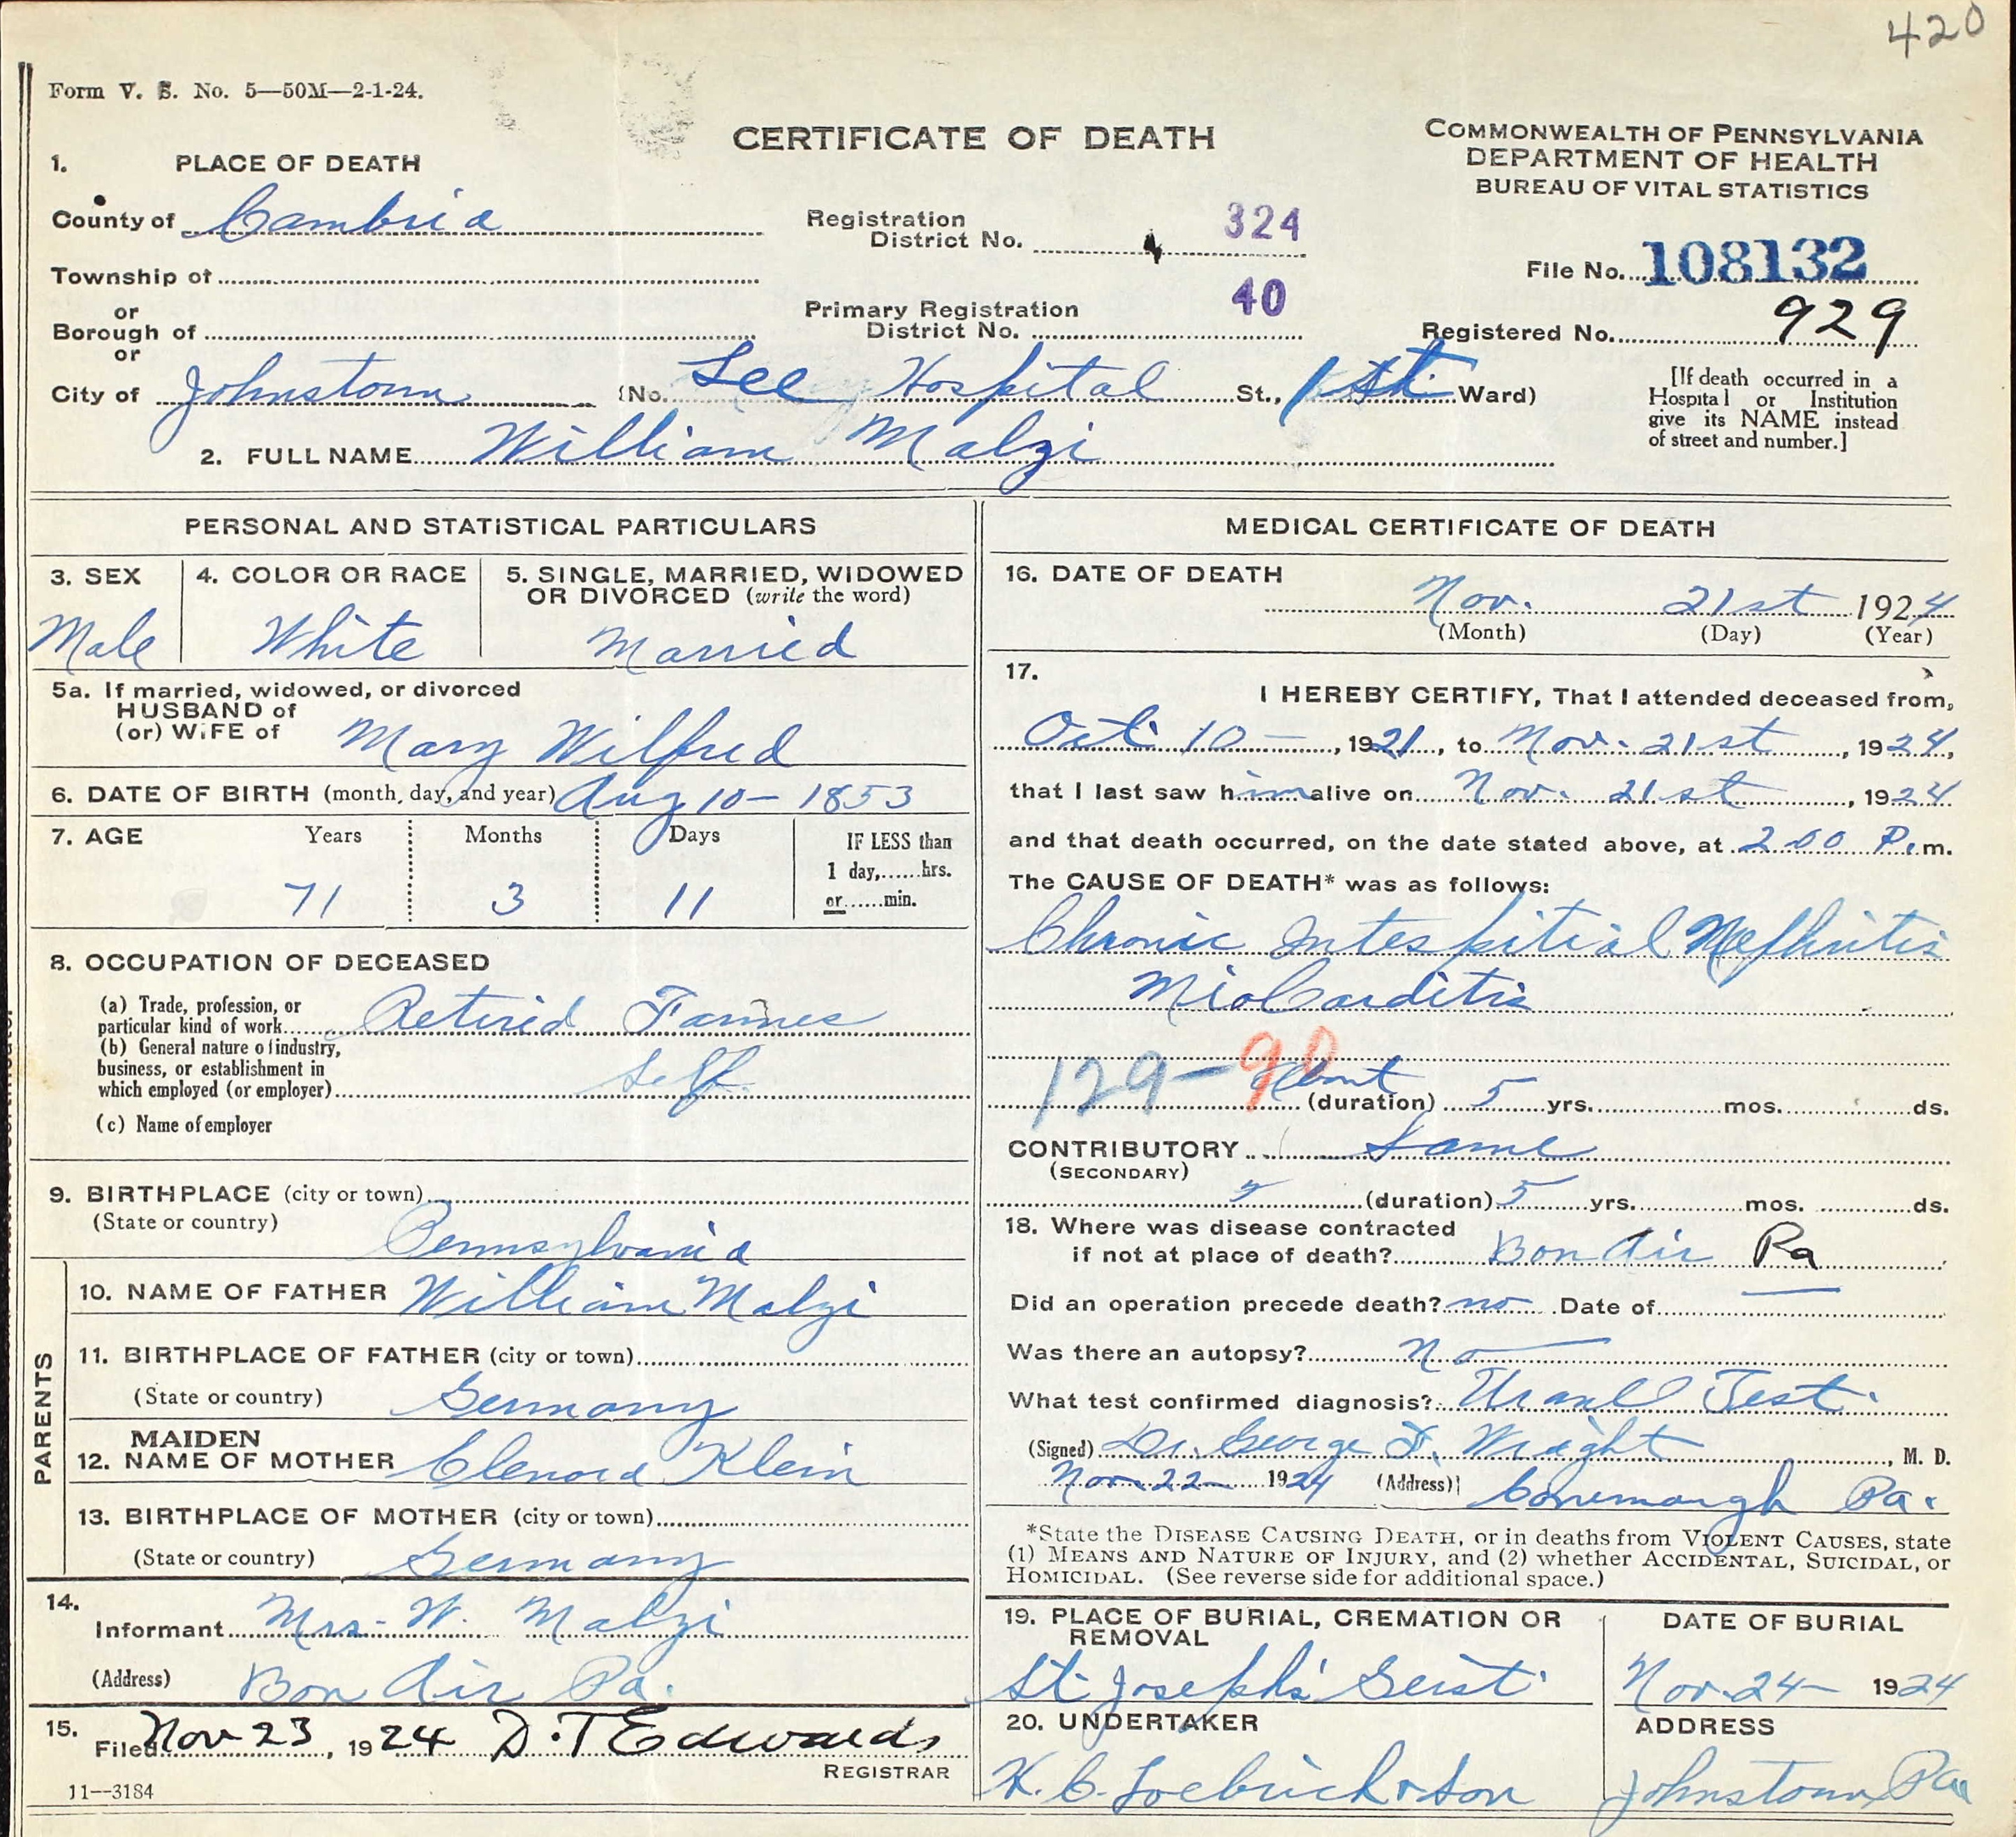 420
Form V. S. No. 5—50M—2-1-24.
CERTIFICATE OF DEATH
COMMONWEALTH OF PENNSYLVANIA
DEPARTMENT OF HEALTH
BUREAU OF VITAL STATISTICS
1. PLACE OF DEATH
County of Cambria
Registration District No. 324
File No. 108132
Township of
or
Borough of
Primary Registration District No. 40
Registered No. 929
or
City of Johnstown (No. Lee Hospital St., 1st Ward)
[If death occurred in a Hospital or Institution give its NAME instead of street and number.]
2. FULL NAME William Malzi
PERSONAL AND STATISTICAL PARTICULARS
3. SEX Male
4. COLOR OR RACE White
5. SINGLE, MARRIED, WIDOWED OR DIVORCED (write the word) Married
5a. If married, widowed, or divorced
HUSBAND of
(or) WIFE of Mary Wilfred
6. DATE OF BIRTH (month, day, and year) Aug 10 - 1853
7. AGE Years 71 Months 3 Days 11
IF LESS than
1 day,......hrs.
or......min.
8. OCCUPATION OF DECEASED
(a) Trade, profession, or
particular kind of work Retired Farmer
(b) General nature of industry,
business, or establishment in
which employed (or employer) Self
(c) Name of employer
9. BIRTHPLACE (city or town)
(State or country) Pennsylvania
PARENTS
10. NAME OF FATHER William Malzi
11. BIRTHPLACE OF FATHER (city or town)
(State or country) Germany
12. MAIDEN NAME OF MOTHER Elenora Klein
13. BIRTHPLACE OF MOTHER (city or town)
(State or country) Germany
14.
Informant Mrs. W. Malzi
(Address) Bon Air Pa.
15.
Filed Nov 23, 1924 D. T Edwards
REGISTRAR
11--3184
MEDICAL CERTIFICATE OF DEATH
16. DATE OF DEATH
Nov. 21st 1924
(Month) (Day) (Year)
17.
I HEREBY CERTIFY, That I attended deceased from,
Oct. 10 -, 1921, to Nov. 21st, 1924,
that I last saw him alive on Nov. 21st, 1924
and that death occurred, on the date stated above, at 2 00 P.m.
The CAUSE OF DEATH* was as follows:
Chronic Intespitial Nephritis
MioCarditis
129-90 About
(duration) 5 yrs. mos. ds.
CONTRIBUTORY Same
(SECONDARY)
5 (duration) 5 yrs. mos. ds.
18. Where was disease contracted
if not at place of death? Bon Air Pa
Did an operation precede death? no Date of
Was there an autopsy? No
What test confirmed diagnosis? Test.
(Signed) Dr. George F. Wright, M. D.
Nov. 22 - 1924 (Address) Conemaugh Pa.
*State the DISEASE CAUSING DEATH, or in deaths from VIOLENT CAUSES, state
(1) MEANS AND NATURE OF INJURY, and (2) whether ACCIDENTAL, SUICIDAL, or
HOMICIDAL. (See reverse side for additional space.)
19. PLACE OF BURIAL, CREMATION OR REMOVAL
St Joseph's Geist.
DATE OF BURIAL
Nov. 24 - 1924
20. UNDERTAKER
H. C. Loebrich & Son
ADDRESS
Johnstown Pa